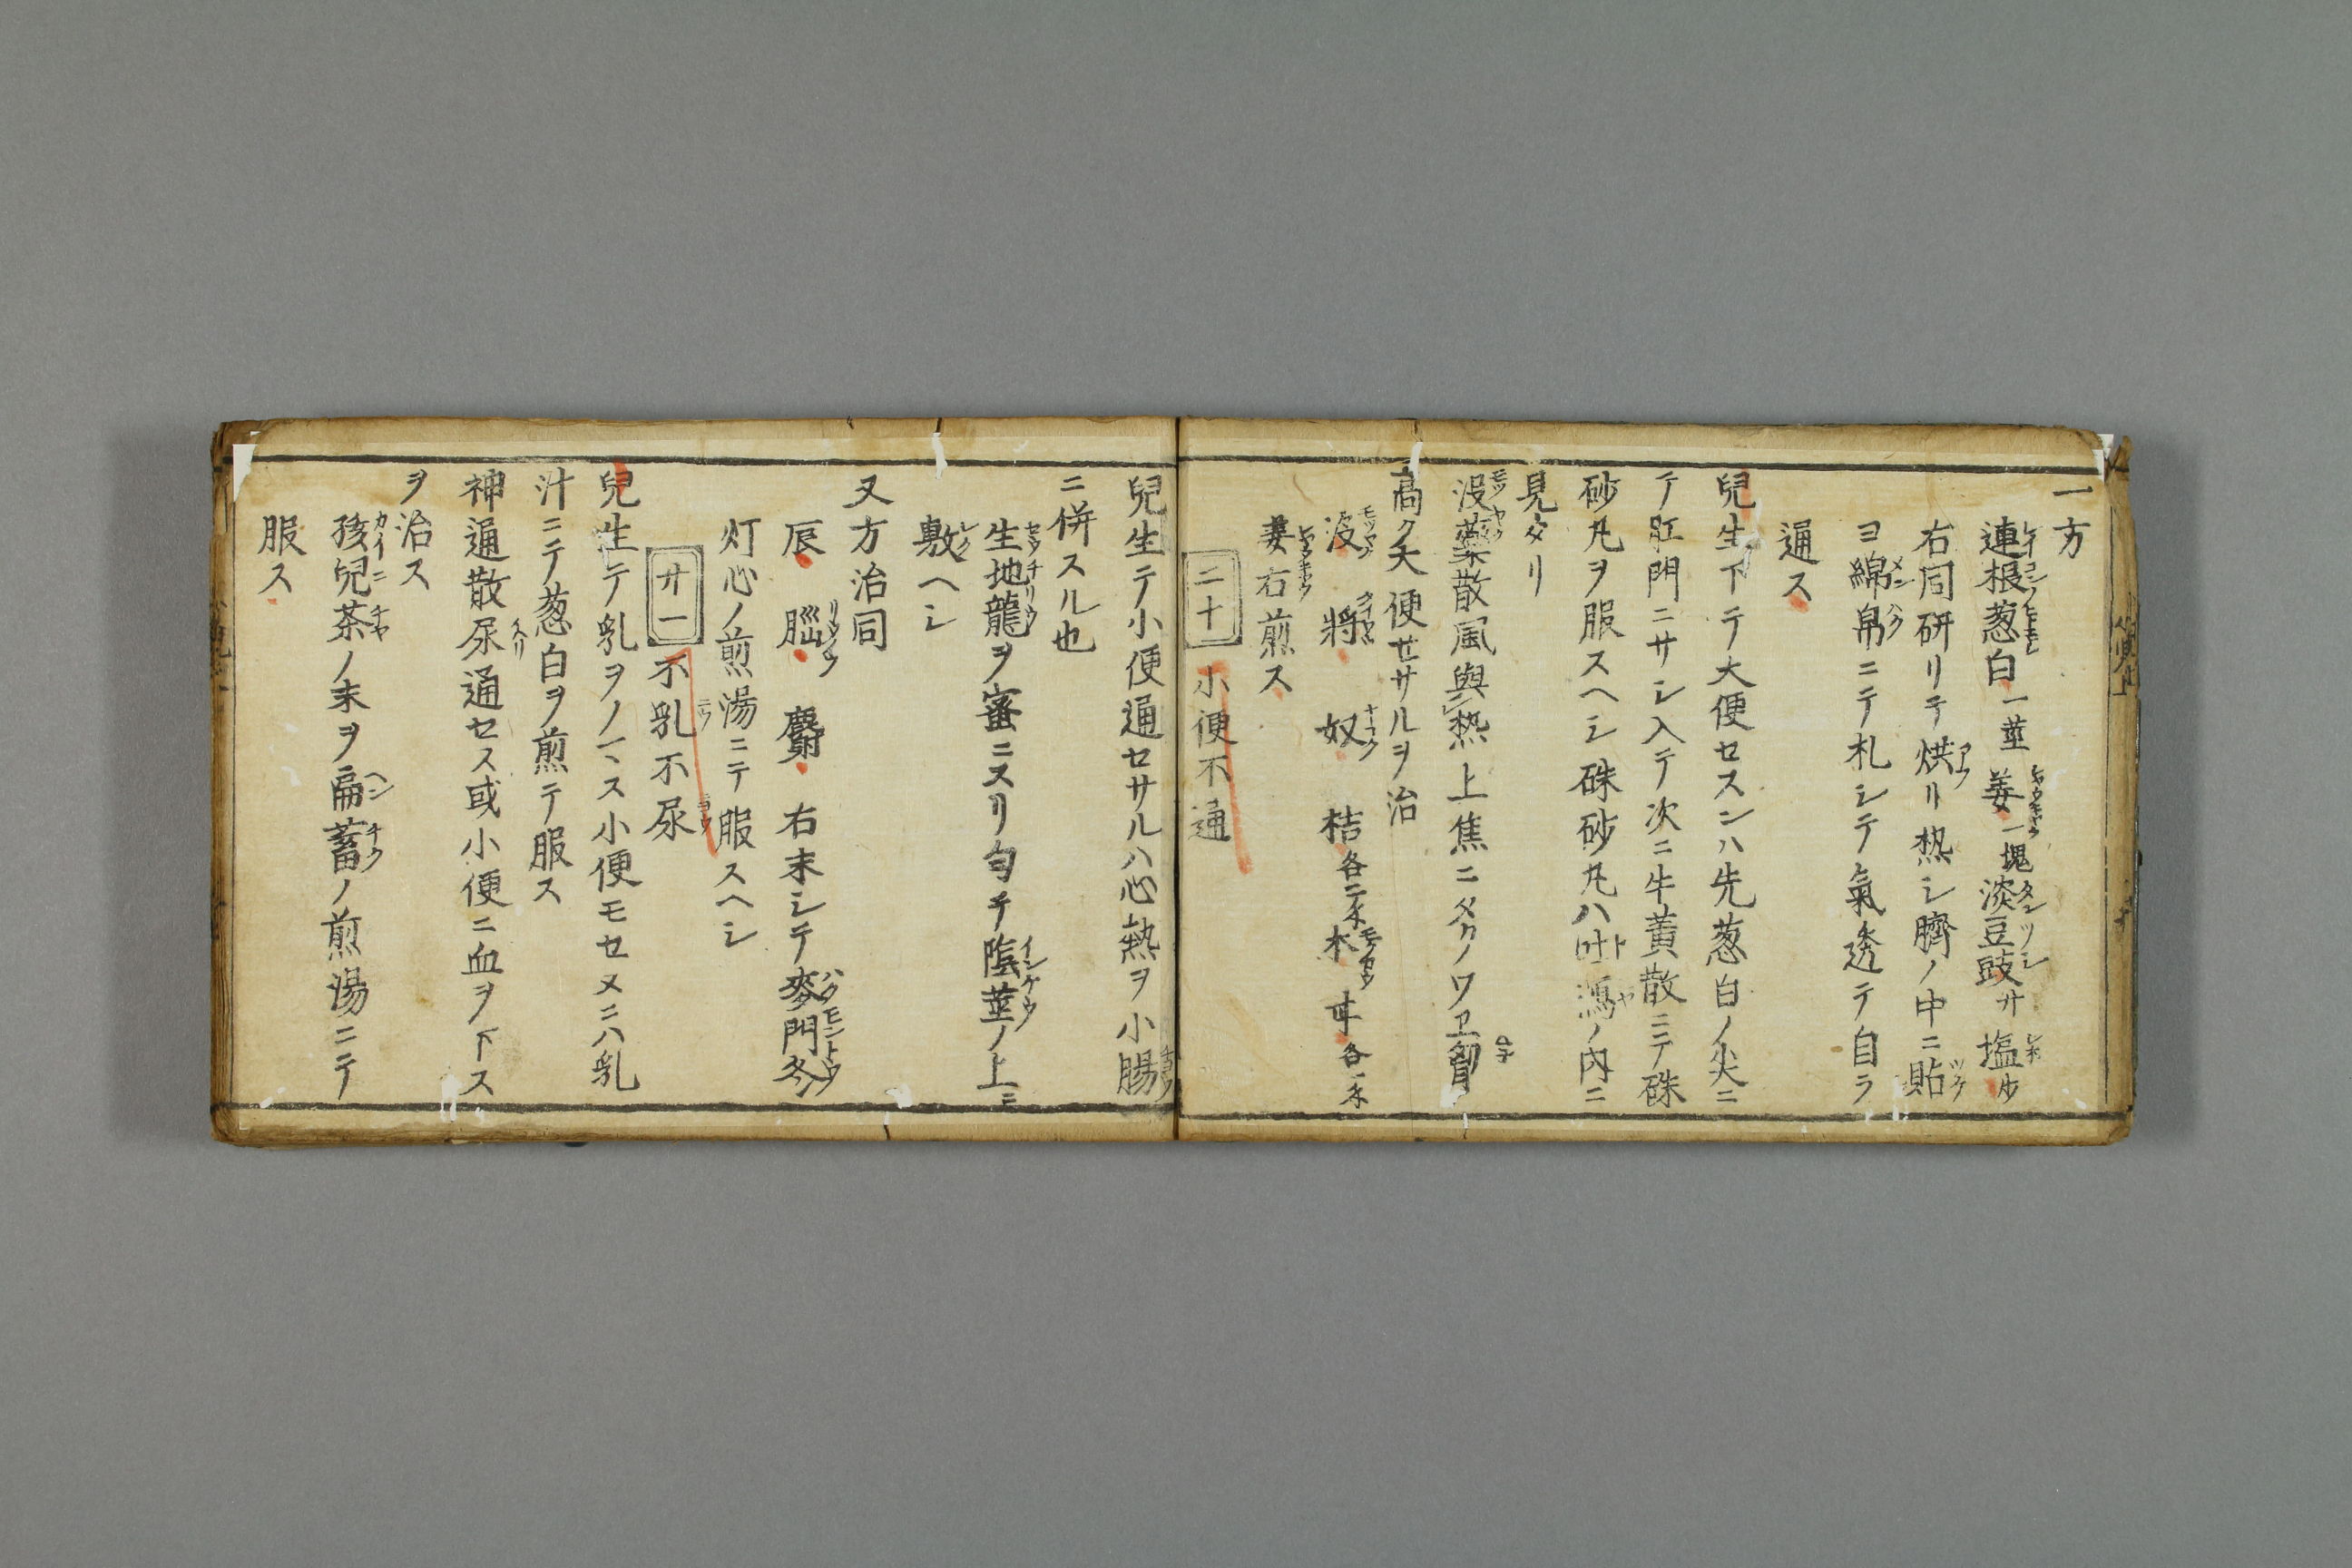 一方
連根葱白一莖 姜一塊淡豆豉廿 塩少
右同研リテ烘リ熱シ臍ノ中ニ貼
ヨ綿帛ニテ札シテ氣透テ自ラ
通ス
兒生下テ大便セスンハ先葱白ノ尖ニ
テ肛門ニサシ入テ次ニ牛黄散ニテ硃
砂凡ヲ服スヘシ硃砂凡ハ吐瀉ノ内ニ
見タリ
没藥散風與熱上焦ニタクノワヱ胷
高ク大便セサルヲ治
没 將 奴 桔各二朱木 草各一朱
姜右煎ス
二十 小便不通
兒生テ小便通セサルハ心熱ヲ小腸
ニ併スル也
生地龍ヲ蜜ニスリ匀チ陰莖ノ上ニ
敷ヘシ
又方治同
辰 腦 麝 右末シテ麥門冬
灯心ノ煎湯ニテ服スヘシ
廿一 不乳不尿
兒生テ乳ヲノマス小便モセヌニハ乳
汁ニテ葱白ヲ煎テ服ス
神通散尿通セス或小便ニ血ヲ下ス
ヲ治ス
孩兒茶ノ末ヲ扁蓄ノ煎湯ニテ
服ス